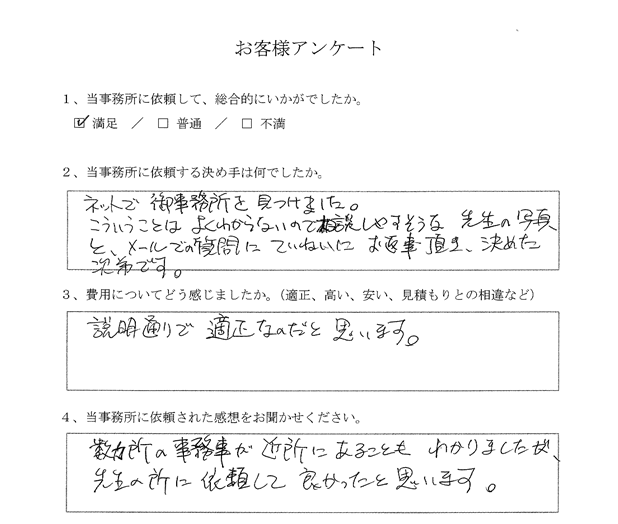 お客様アンケート
1、当事務所に依頼して、総合的にいかがでしたか。
☑ 満足 ／ □ 普通 ／ □ 不満
2、当事務所に依頼する決め手は何でしたか。
ネットで 御事務所を見つけました。
こういうことは よくわからないので相談しやすそうな 先生の写真
と、メールでの質問に ていねいに お返事頂き、決めた
次第です。
3、費用についてどう感じましたか。（適正、高い、安い、見積もりとの相違など）
説明通りで 適正なのだと 思います。
4、当事務所に依頼された感想をお聞かせください。
数カ所の事務事が 近所に あることも わかりましたが、
先生の所に 依頼して 良かったと思います。